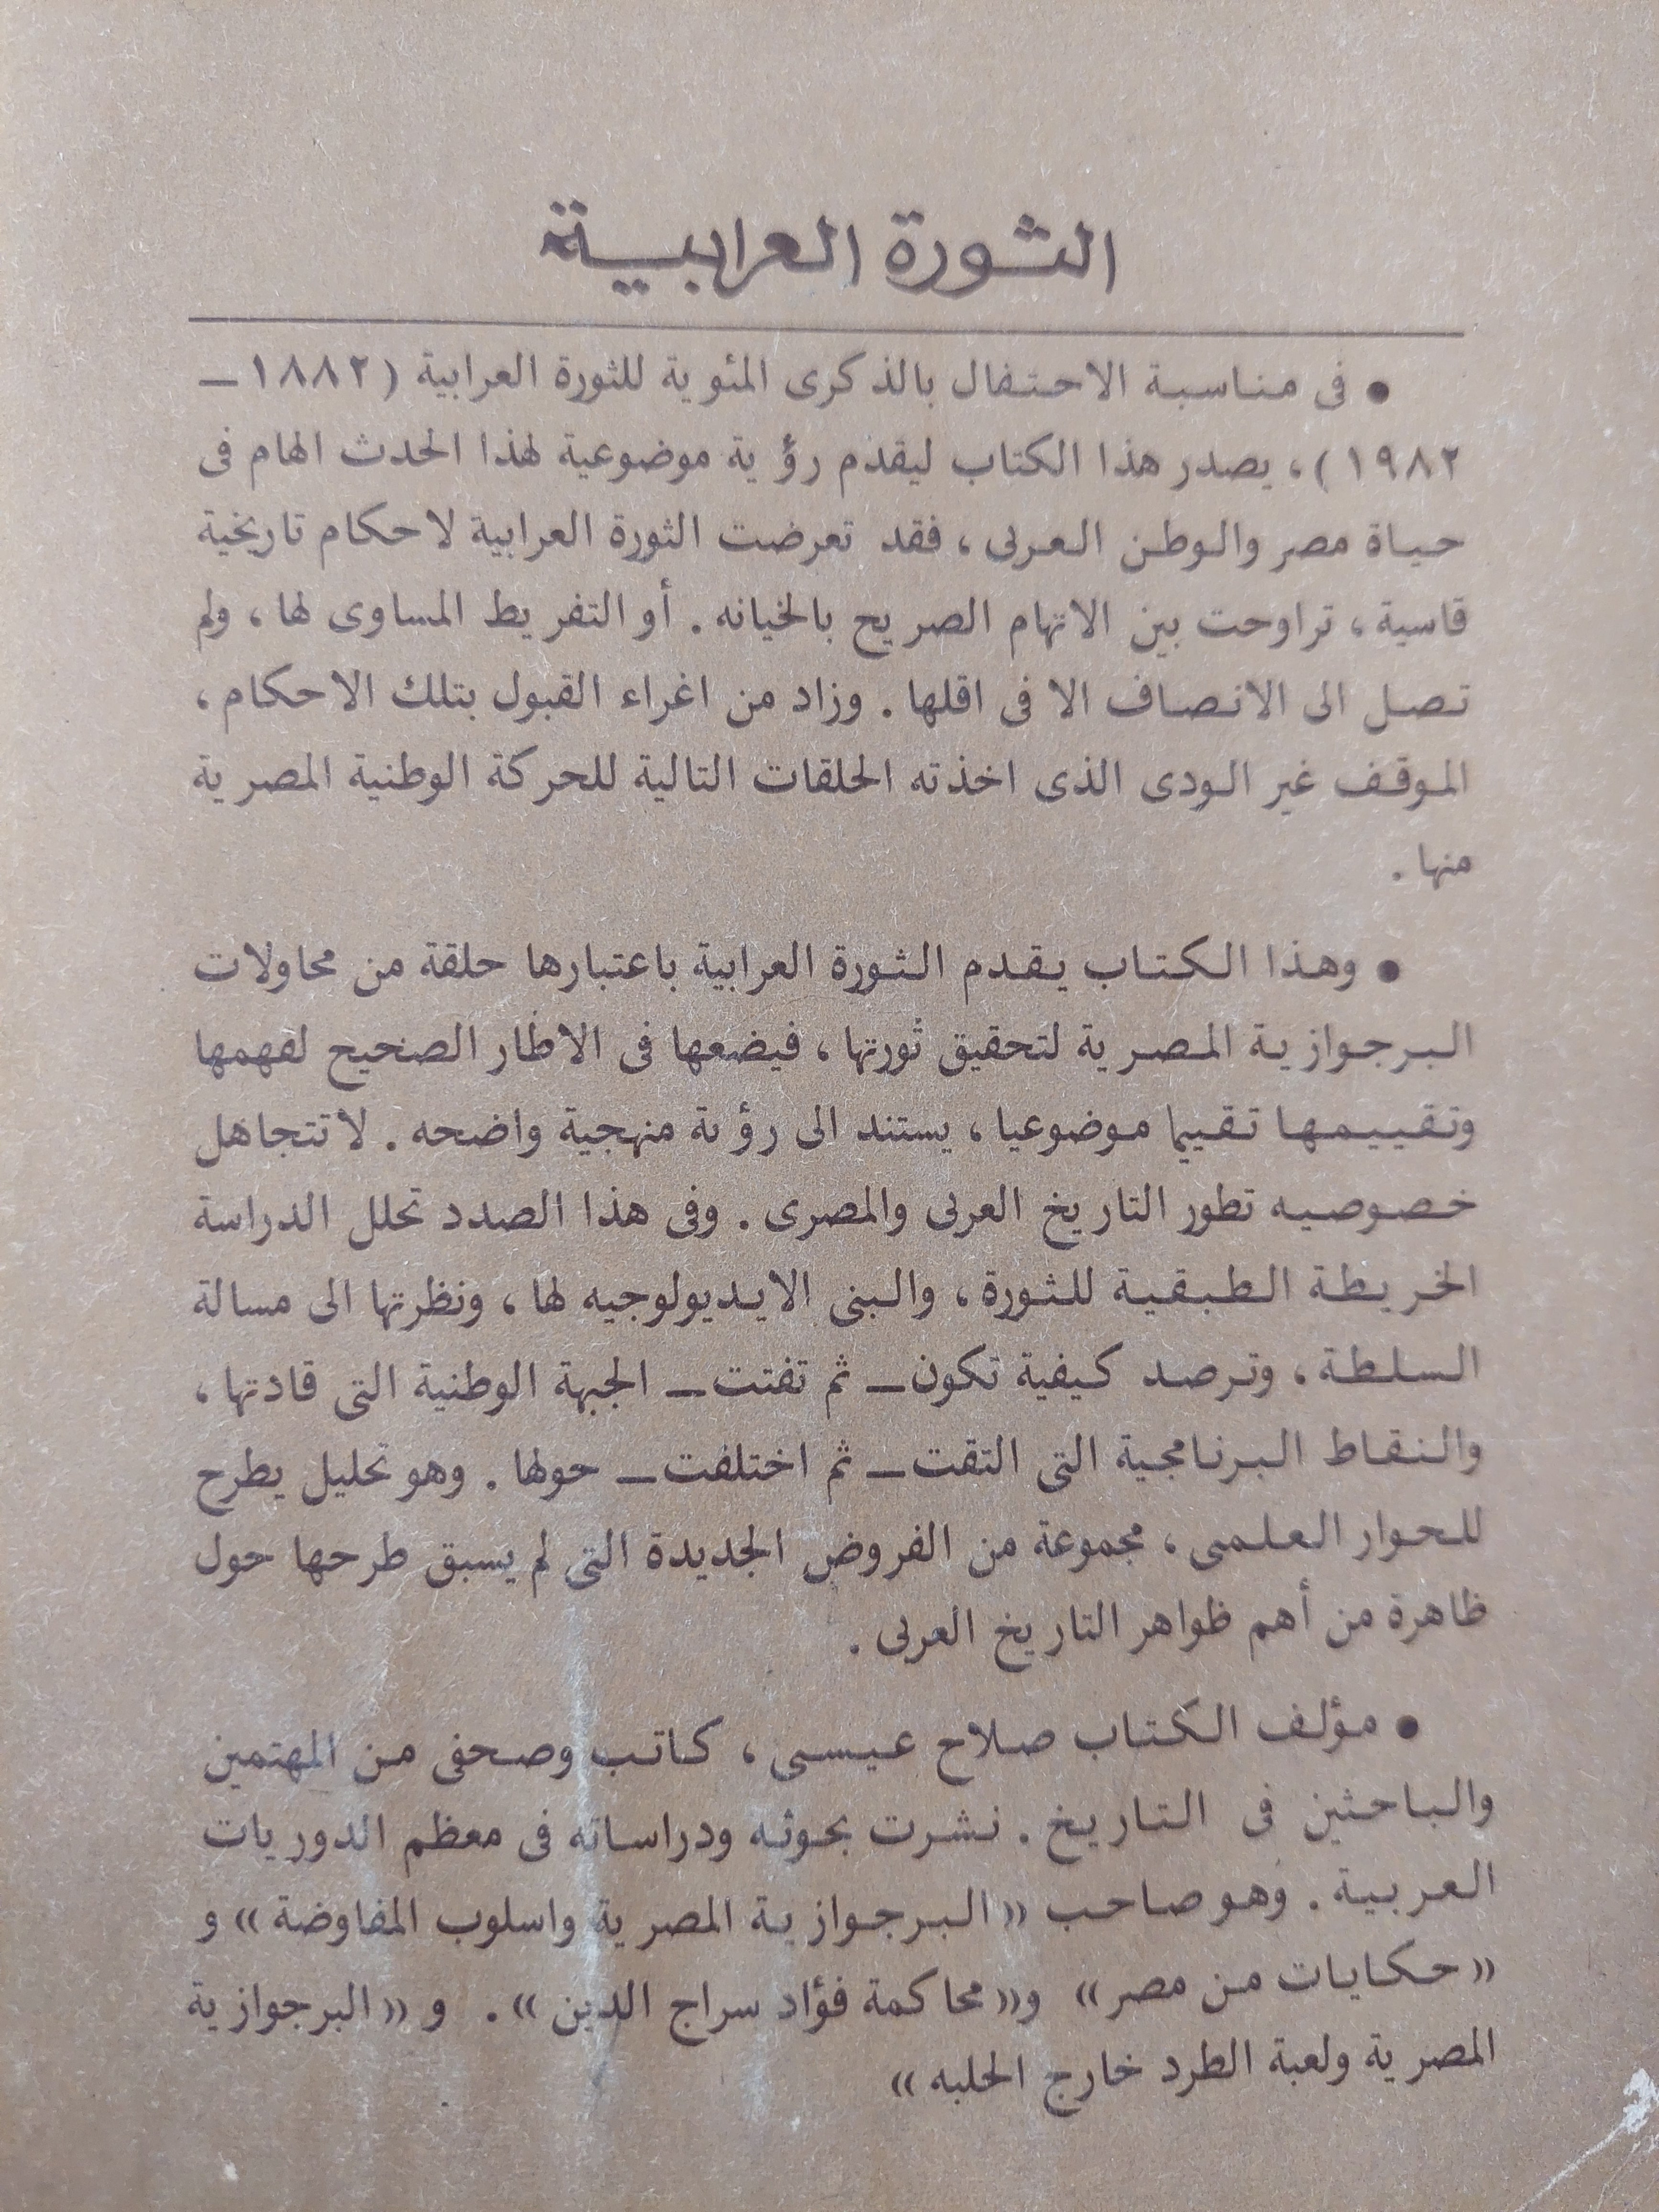 الثورة العرابية
● فى مناسبة الاحتفال بالذكرى المئوية للثورة العرابية (١٨٨٢ —
١٩٨٢) ، يصدر هذا الكتاب ليقدم رؤية موضوعية لهذا الحدث الهام فى
حياة مصر والوطن العربى ، فقد تعرضت الثورة العرابية لاحكام تاريخية
قاسية ، تراوحت بين الاتهام الصريح بالخيانه . أو التفريط المساوى لها ، ولم
تصل الى الانصاف الا فى اقلها . وزاد من اغراء القبول بتلك الاحكام ،
الموقف غير الودى الذى اخذته الحلقات التالية للحركة الوطنية المصرية
منها .
● وهذا الكتاب يقدم الثورة العرابية باعتبارها حلقة من محاولات
البرجوازية المصرية لتحقيق ثورتها ، فيضعها فى الاطار الصحيح لفهمها
وتقييمها تقييما موضوعيا ، يستند الى رؤية منهجية واضحه . لا تتجاهل
خصوصيه تطور التاريخ العربى والمصرى . وفى هذا الصدد تحلل الدراسة
الخريطة الطبقية للثورة ، والبنى الايديولوجيه لها ، ونظرتها الى مسالة
السلطة ، وترصد كيفية تكون — ثم تفتت — الجبهة الوطنية التى قادتها ،
والنقاط البرنامجية التى التقت — ثم اختلفت — حولها . وهو تحليل يطرح
للحوار العلمى ، مجموعة من الفروض الجديدة التى لم يسبق طرحها حول
ظاهرة من أهم ظواهر التاريخ العربى .
● مؤلف الكتاب صلاح عيسى ، كاتب وصحفى من المهتمين
والباحثين فى التاريخ . نشرت بحوثه ودراساته فى معظم الدوريات
العربية . وهو صاحب «البرجوازية المصرية واسلوب المفاوضة» و
«حكايات من مصر» و«محاكمة فؤاد سراج الدين» . و «البرجوازية
المصرية ولعبة الطرد خارج الحلبه»